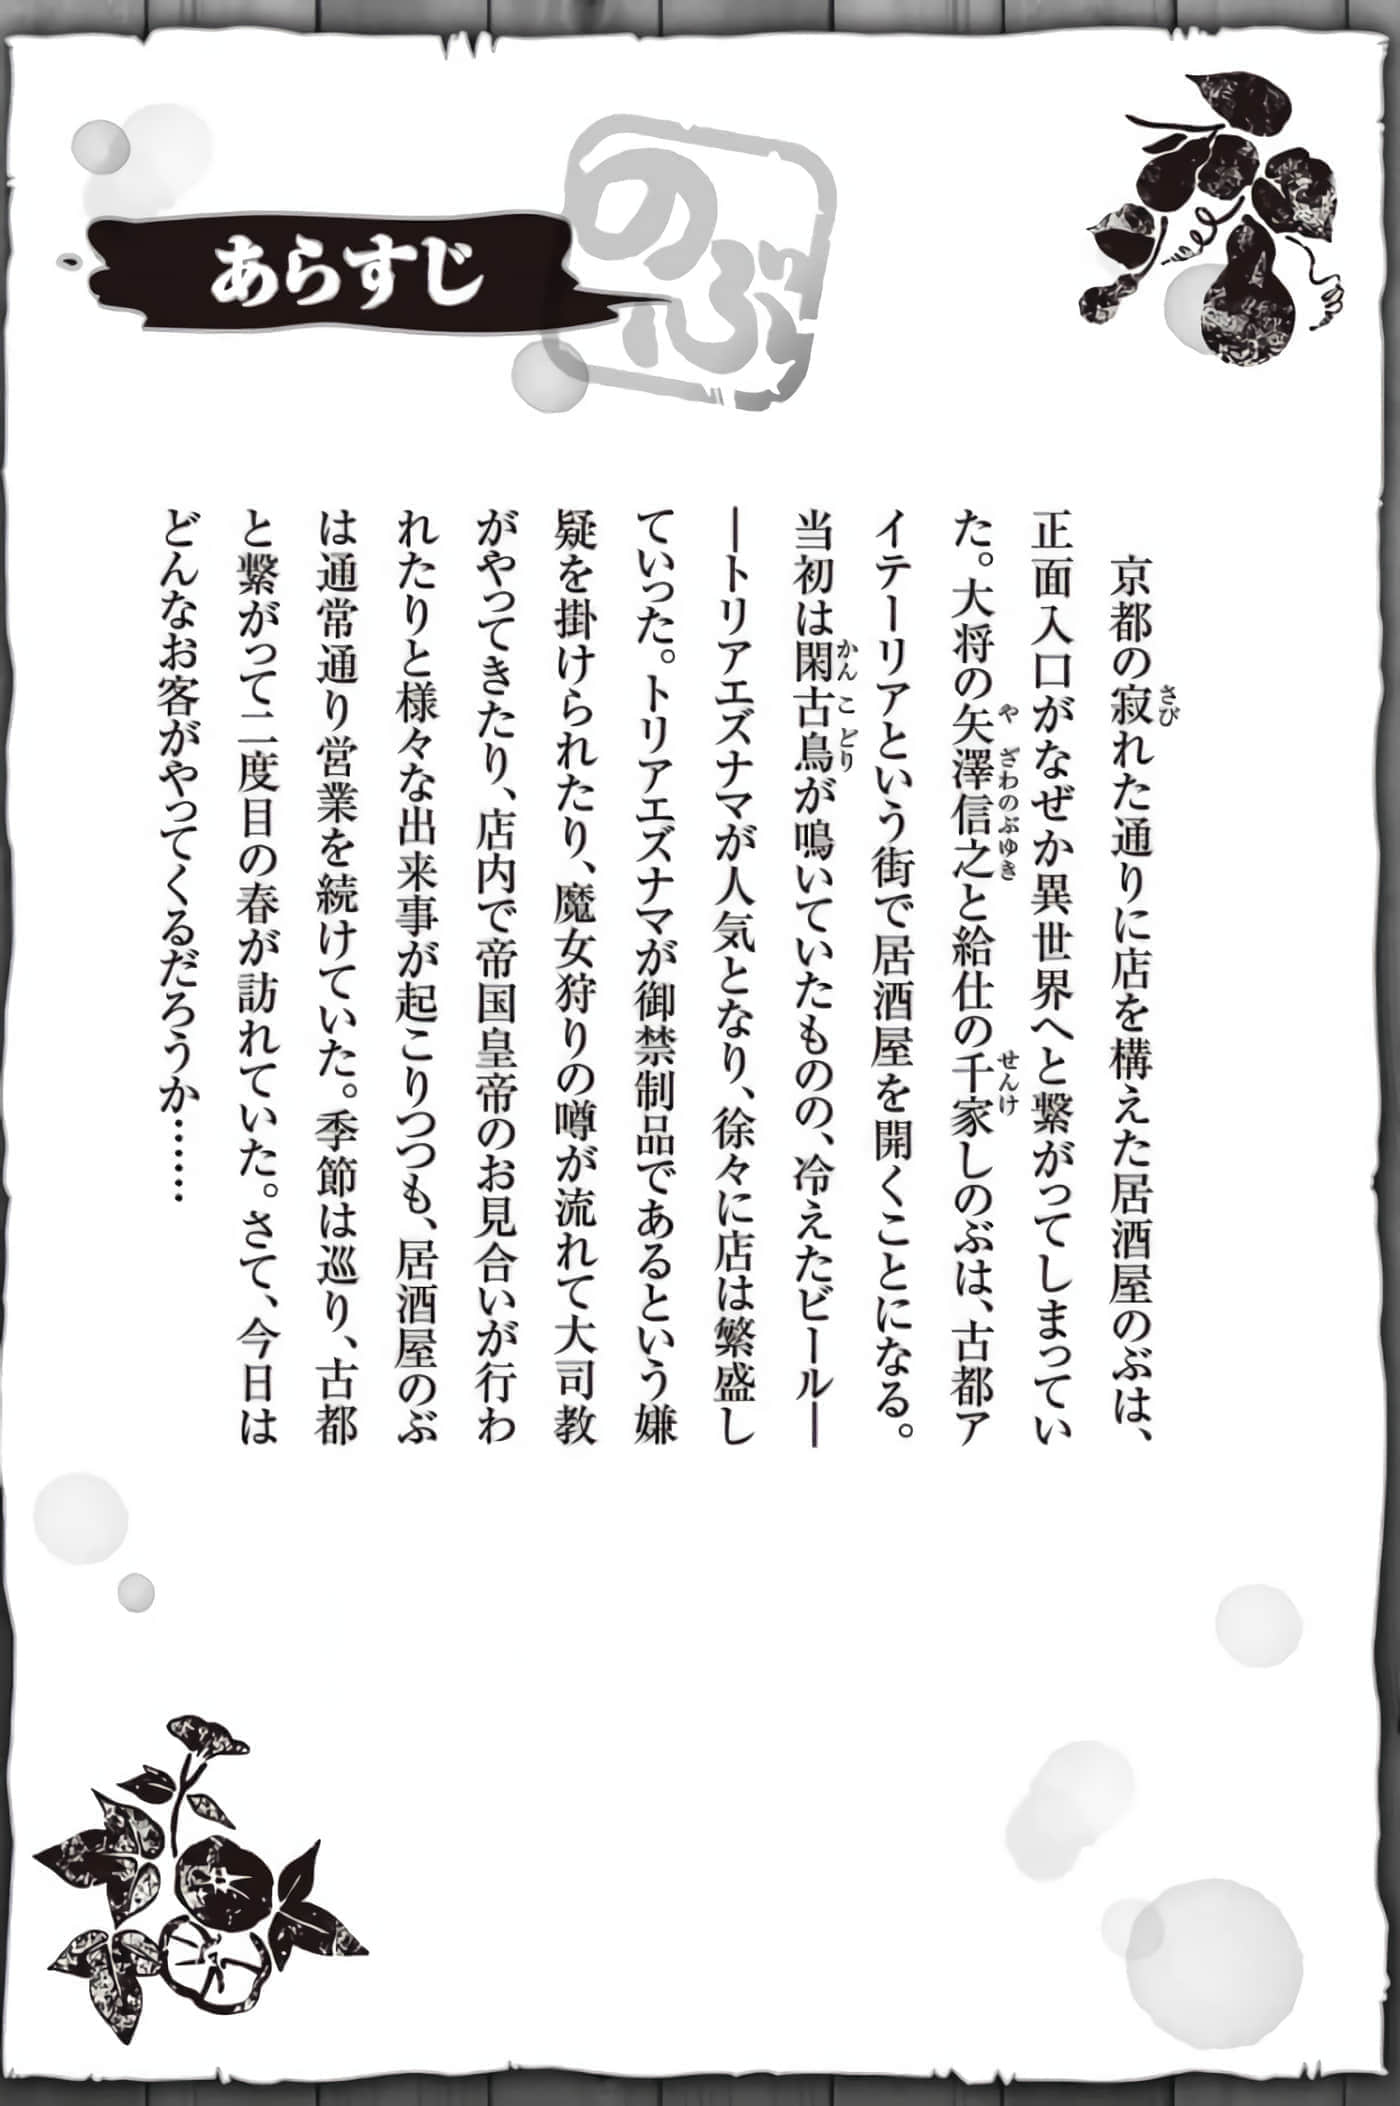 あらすじ
のぶ
京都の寂れた通りに店を構えた居酒屋のぶは、
正面入口がなぜか異世界へと繋がってしまってい
た。大将の矢澤信之と給仕の千家しのぶは、古都ア
イテーリアという街で居酒屋を開くことになる。
当初は閑古鳥が鳴いていたものの、冷えたビール―
―トリアエズナマが人気となり、徐々に店は繁盛し
ていった。トリアエズナマが御禁制品であるという嫌
疑を掛けられたり、魔女狩りの噂が流れて大司教
がやってきたり、店内で帝国皇帝のお見合いが行わ
れたりと様々な出来事が起こりつつも、居酒屋のぶ
は通常通り営業を続けていた。季節は巡り、古都
と繋がって二度目の春が訪れていた。さて、今日は
どんなお客がやってくるだろうか……